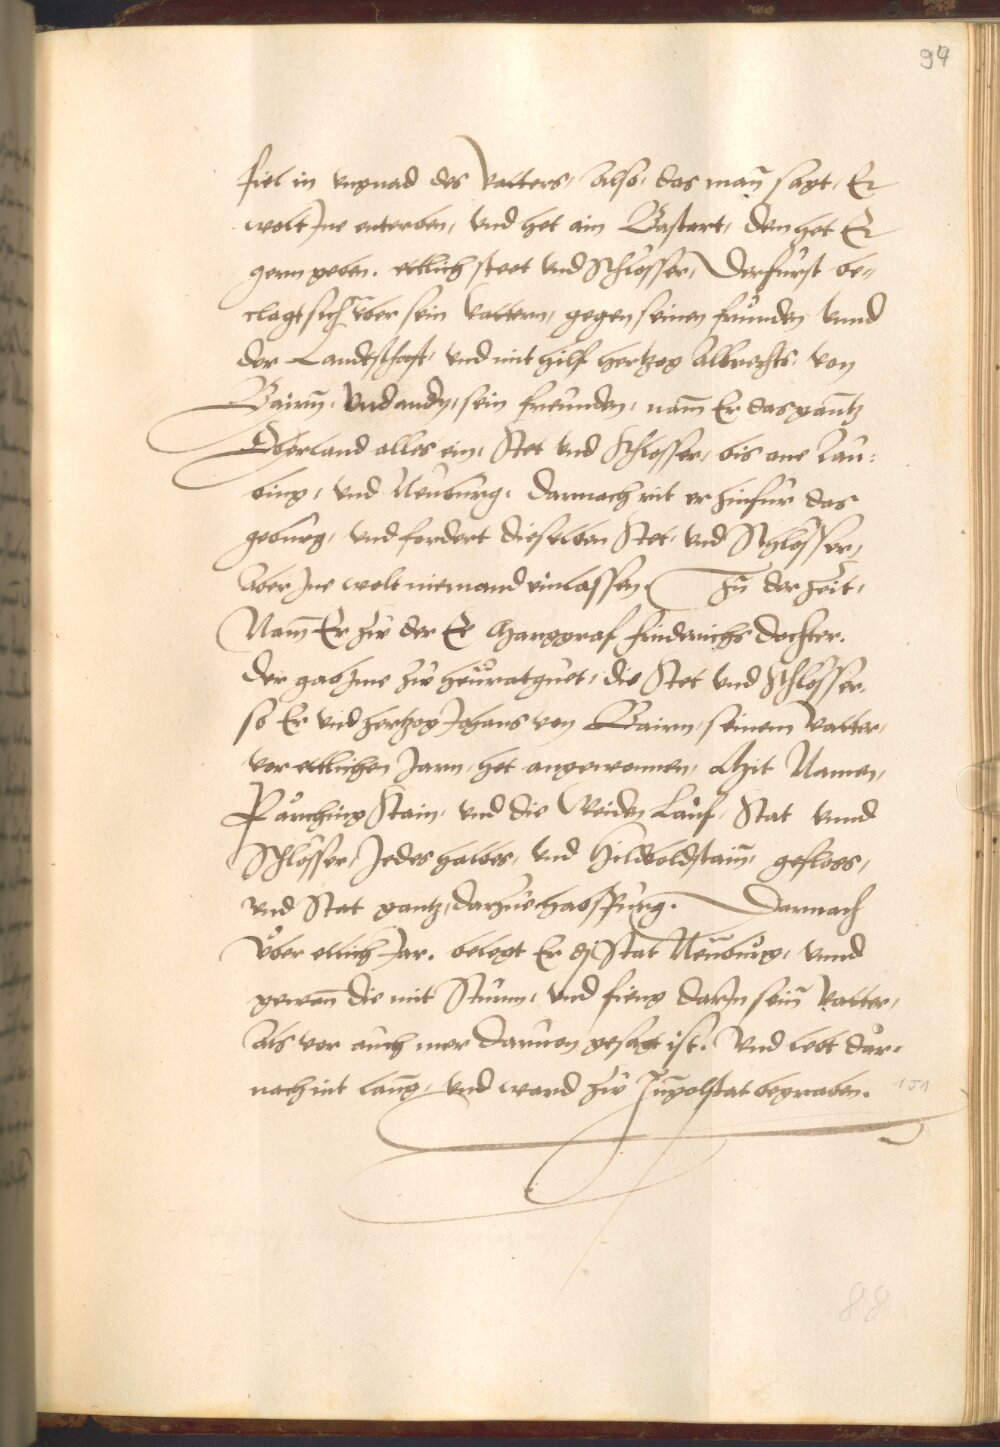 94
fiel in ungnad des Vatters, Also, das man̄ sagt, Er
wolt Jne enterben, Vnd het ain Bastart, den het Er
gern geben. ettlich stett vnd Schlosser, Der fürst be-
clagt sich vber sein Vattern, gegen seinen fründen vnnd
der Landtschafft, vnd mit hilf hertzog Albrechts von
Bairn̄, Vnd andrn, sein freunden, nam̄ Er das gantz
Oberland alles ein, Stet vnd Schlosser, bis one Lau-
ging, vnd Neuburg. Darnach rit er hinfur das
geburg, vnd fordert dieselben Stet, vnd Schlosser,
Aber Jne wolt niemand einlassen. Zu der Zeit,
Nam̄ Er zu der Ee Marggraf Friderichs dochter.
Der gab Jme zu heuratguet, die Stet vnd Schlosser,
so Er vnd hertzog Johans von Bairn, seinem Vatter,
vor ettlichen Jarn, het angewonnen, Mit Namen,
Parchingstain, vnd die Weiden Lauf, Stat vnnd
Schlosser, Jedes halbes, vnd hilboldstain̄, geslos,
vnd Stat gantz, darzue Haospurg. Darnach
Vber etlich Jar. belegt Er die Stat Neuburg, vnnd
gewan̄ die mit Sturm, vnd fieng darJn sein̄ Vatter,
Als vor auch mer daruon gesagt ist. Vnd lebt dar-
nach nit lang, vnd ward zu Ingolstat begraben.
151
88